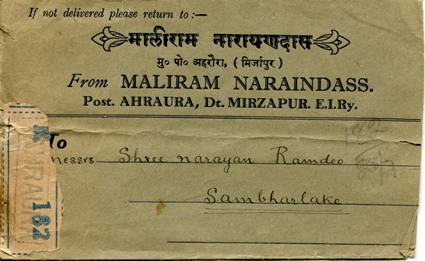 If not delivered please return to :—
मालीराम नारायणदास
मु० पो० अहरौरा, ( मिर्जापुर )
From MALIRAM NARAINDASS.
Post. AHRAURA, Dt. MIRZAPUR. E.I.Ry.
To
Messrs Shree Narayan Ramdeo
Sambharlake
R
AHRAURA
182